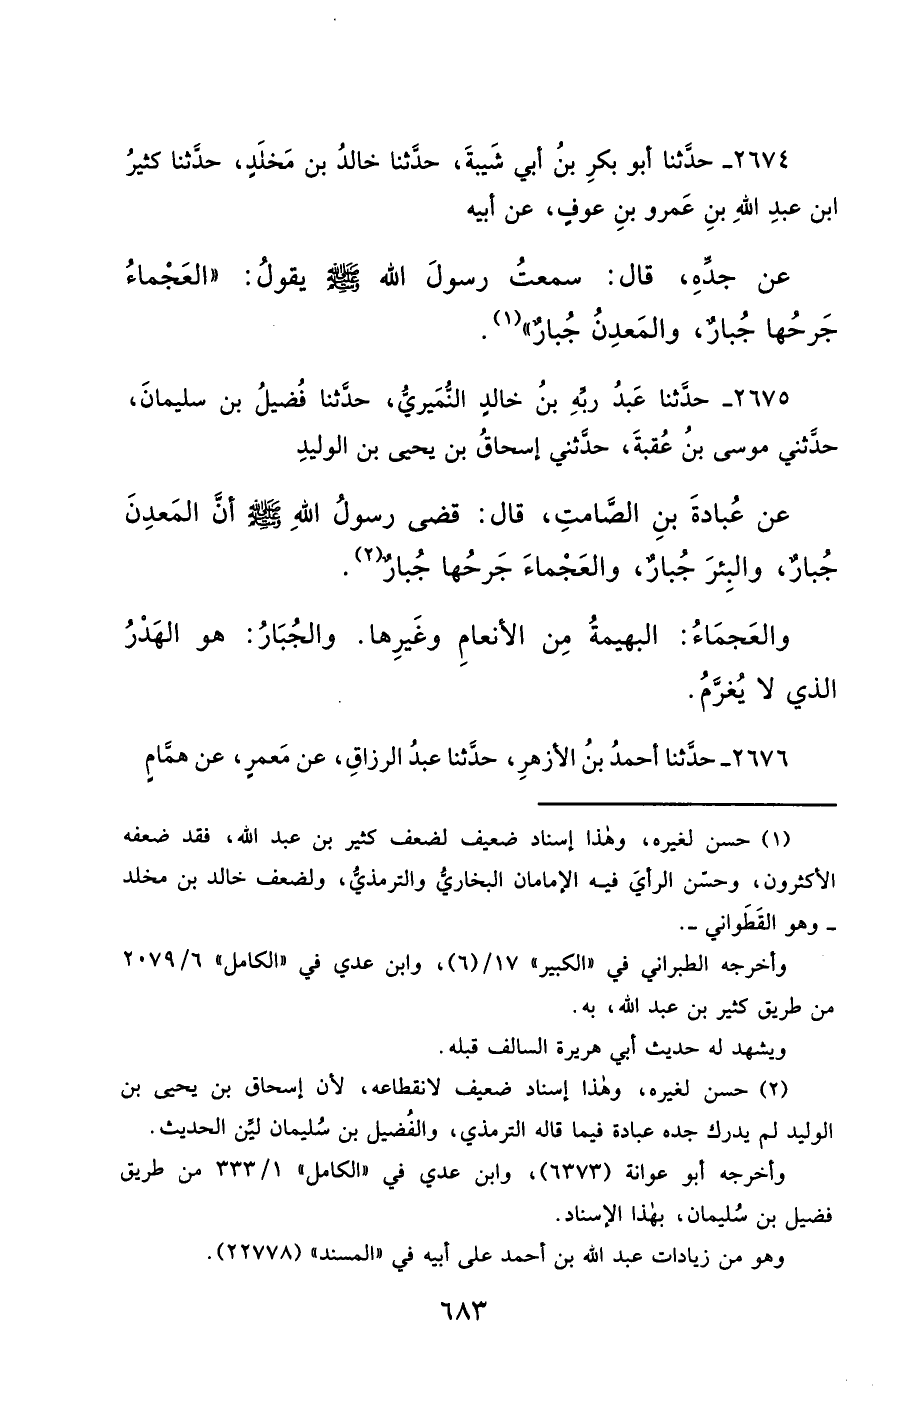 ٢٦٧٤ـ حدَّثنا أبو بكرِ بنُ أبي شَيبةَ، حدَّثنا خالدُ بن مَخلَدٍ، حدَّثنا كثيرُ
ابن عبدِ اللهِ بنِ عَمرو بنِ عوفٍ، عن أبيه
عن جدِّهِ، قال: سمعتُ رسولَ الله ﷺ يقولُ: «العَجْماءُ
جَرحُها جُبارٌ، والمَعدِنُ جُبارٌ»(١).
٢٦٧٥ـ حدَّثنا عَبدُ ربِّهِ بنُ خالدٍ النُّمَيريُّ، حدَّثنا فُضيلُ بن سليمانَ،
حدَّثني موسى بنُ عُقبةَ، حدَّثني إسحاقُ بن يحيى بن الوليدِ
عن عُبادةَ بنِ الصَّامتِ، قال: قضى رسولُ اللهِ ﷺ أنَّ المَعدِنَ
جُبارٌ، والبِئرَ جُبارٌ، والعَجْماءَ جَرحُها جُبارٌ(٢).
والعَجمَاءُ: البهيمةُ مِن الأنعامِ وغَيرِها. والجُبَارُ: هو الهَدْرُ
الذي لا يُغرَّمُ.
٢٦٧٦ـ حدَّثنا أحمدُ بنُ الأزهرِ، حدَّثنا عبدُ الرزاقِ، عن مَعمرٍ، عن همَّامٍ
(١) حسن لغيره، وهٰذا إسناد ضعيف لضعف كثير بن عبد الله، فقد ضعفه
الأكثرون، وحسّن الرأيَ فيه الإمامان البخاريُّ والترمذيُّ، ولضعف خالد بن مخلد
ـ وهو القَطَواني ـ.
وأخرجه الطبراني في «الكبير» ١٧/(٦)، وابن عدي في «الكامل» ٦/ ٢٠٧٩
من طريق كثير بن عبد الله، به.
ويشهد له حديث أبي هريرة السالف قبله.
(٢) حسن لغيره، وهٰذا إسناد ضعيف لانقطاعه، لأن إسحاق بن يحيى بن
الوليد لم يدرك جده عبادة فيما قاله الترمذي، والفُضيل بن سُليمان ليِّن الحديث.
وأخرجه أبو عوانة (٦٣٧٣)، وابن عدي في «الكامل» ١/ ٣٣٣ من طريق
فضيل بن سُليمان، بهٰذا الإسناد.
وهو من زيادات عبد الله بن أحمد على أبيه في «المسند» (٢٢٧٧٨).
٦٨٣